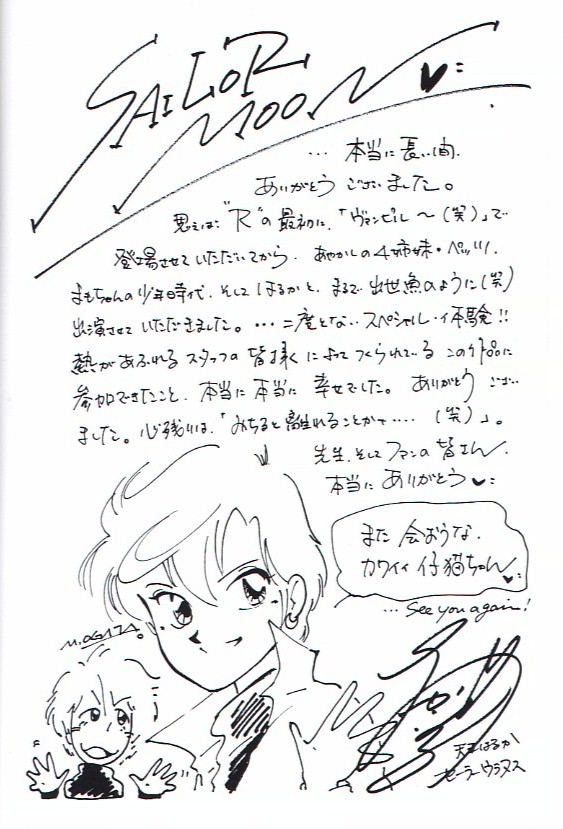 SAILOR
MOON
… 本当に長い間、
ありがとうございました。
思えば“R”の最初に、「ヴァンピル〜(笑)」で
登場させていただいてから、あやかしの4姉妹・ペッツ、
まもちゃんの少年時代、そしてはるかと、まるで出世魚のように(笑)
出演させていただきました。…二度とないスペシャルな体験!!
熱があふれるスタッフの皆様によってつくられているこの作品に
参加できたこと、本当に本当に幸せでした。ありがとうござい
ました。心残りは、「みちると離れることかナ……(笑)」。
先生、そしてファンの皆さん、
本当にありがとう
また会おうな、
カワイイ仔猫ちゃん
… See you again!
M.OGATA。
天王はるか
セーラーウラヌス